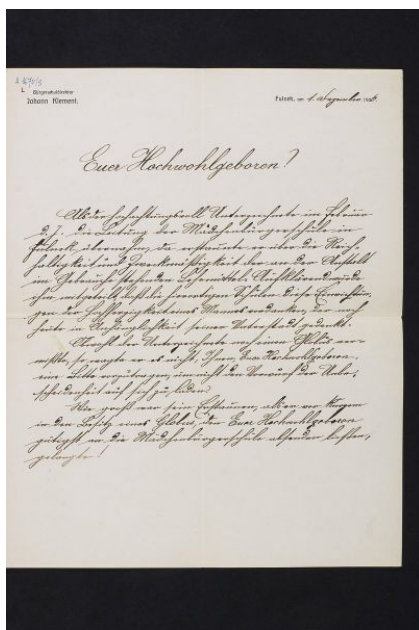 I.
Bürgerschuldirektor
Johann Klement.
Fulnek, am 1. Dezember
Euer Hochwohlgeboren!
Als der hochachtungsvoll Unterzeichnete im Februar
d. J. die Leitung der Mädchenbürgerschule in
Fulnek übernahm, da erstaunte er über die Reich-
haltigkeit und Zweckmäßigkeit der an der Anstalt
im Gebrauche stehenden Lehrmittel. Aufklärend wurde
ihm mitgeteilt, daß die hierortigen Schulen diese Einrichtun-
gen der Hochherzigkeit eines Mannes verdanken, der noch
heute in Anhänglichkeit seiner Vaterstadt gedenkt.
Obwohl der Unterzeichnete noch einen Globus ver-
mißte, so wagte er es nicht, Ihnen, Euer Hochwohlgeboren
eine Bitte vorzutragen, um nicht den Vorwurf der Unbe-
scheidenheit auf sich zu laden.
Wie groß war sein Erstaunen, als er vor kurzem
in den Besitz eines Globus, den Euer Hochwohlgeboren
gütigst an die Mädchenbürgerschule absenden ließen,
gelangte!